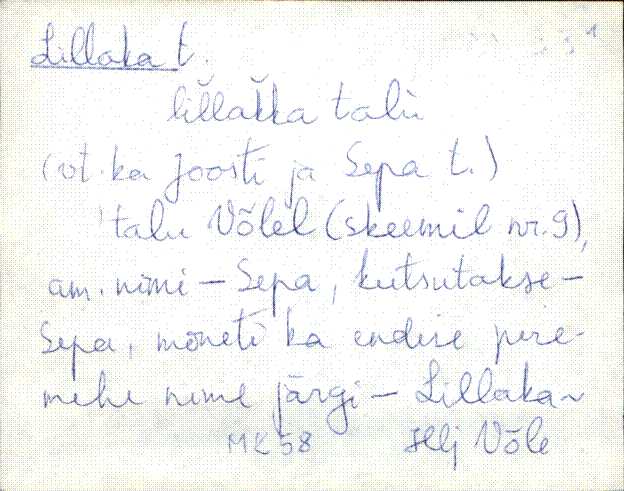 Lillaka t.
lillakka talu
(vt. ka Joosti ja Sepa t.)
talu Võlel (skeemil nr. 9),
am. nimi – Sepa, kutsutakse –
Sepa, mõneti ka endise pere-
mehe nime järgi – Lillaka ~
MK 58 Hlj Võle